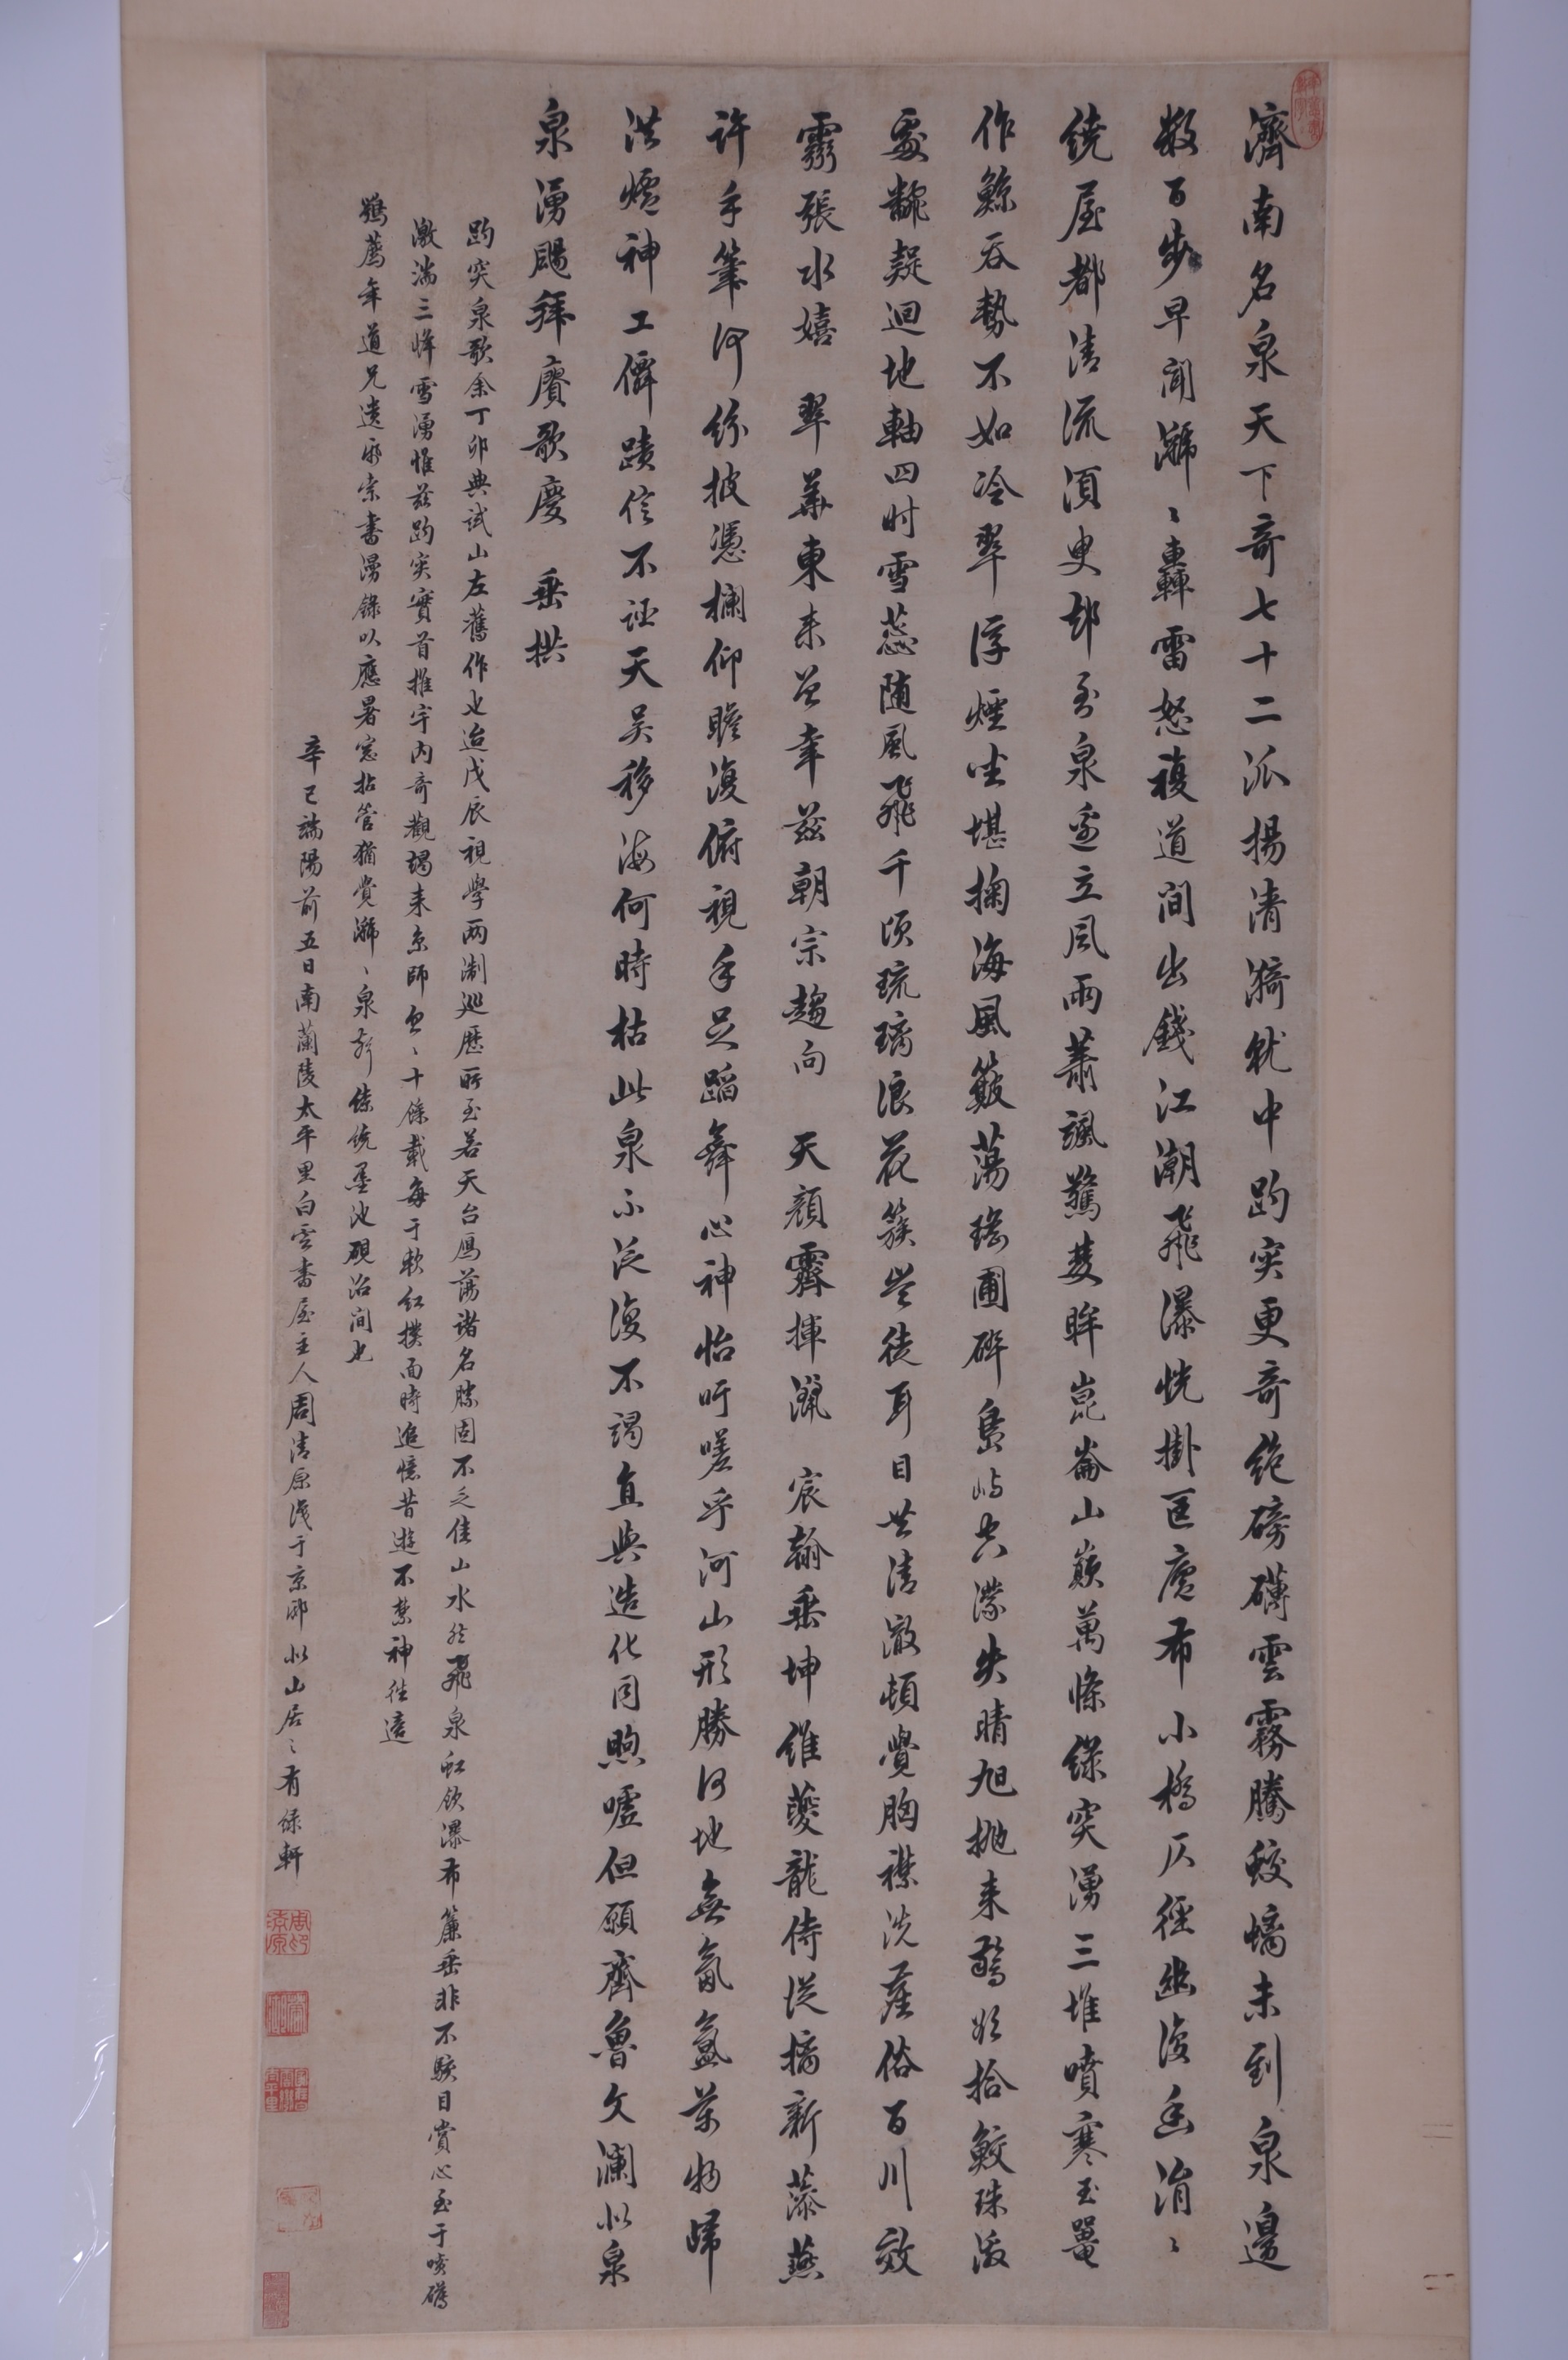 濟南名泉天下奇七十二派揚清漪就中趵突更奇絶磅礴雲霧騰蛟螭未到泉邊
數百步早聞㶁〻轟雷怒複道間出錢江潮飛瀑恍掛匡廬布小橋仄徑幽復幽涓〻
繞屋都清流須臾却到泉邊立風雨蕭颯驚雙眸崑崙山巔萬條綠突湧三堆噴寒玉鼉
作鯨吞勢不如冷翠浮煙坐堪掬海風簸蕩瑤圃碎島嶼空濛失晴旭拋來驚欲拾鮫珠激
處翻疑迴地軸四時雪蕊隨風飛千頃琉璃浪花簇豈徒耳目共清澈頓覺胸襟洗塵俗百川效
靈張水嬉 翠華東來曾幸茲朝宗趨向 天顏霽揮灑 宸翰垂坤維夔龍侍從摛新藻燕
許手筆何紛披憑欄仰瞻復俯視手足蹈舞心神怡吁嗟乎河山形勝何地無氤氳萬物歸
洪爐神工僻蹟信不誣天吳移海何時枯此泉不泛復不竭直與造化同煦噓但願齊魯文瀾似泉
泉湧颺拜賡歌慶 垂拱
趵突泉歌余丁卯典試山左舊作也迨戊辰視學兩浙巡歷所至若天台雁蕩諸名勝固不乏佳山水然飛泉虹飲瀑布簾垂非不駭目賞心至于噴礴
激湍三峰雪湧惟茲趵突實首推宇内奇觀朅來京師匆〻十餘載每于軟紅撲面時追憶昔遊不禁神往適
鶴薦年道兄遠來索書漫錄以應暑窓拈管猶覺㶁〻泉聲繚繞墨池硯沼間也
辛巳端陽前五日南蘭陵太平里白雲書屋主人周清原識于京邸似山居〻有綠軒
周清原印